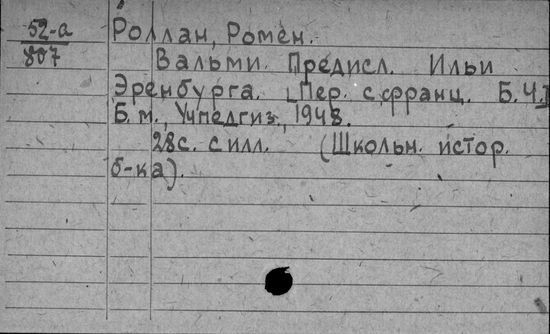 52-а
807
Роллан, Ромен.
Вальми. Предисл. Ильи
Эренбурга. [Пер. с франц. Б.Ч.]
Б. м., Учпедгиз, 1948.
28с. с илл. (Школьн. истор.
б-ка).